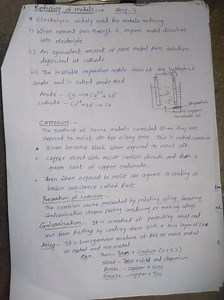 Refining of metals :- Step-3
Electrolysis widely used for metals refining
i) When current pass through it, impure metal dissolves
into electrolyte
ii) An equivalent amount of pure metal from solution
deposited at cathode
iii) The insoluble impurities settle down at the bottom of
anode and is called anode mud
Anode - Cu → Cu²⁺ + 2e⁻
Cathode - Cu²⁺ + 2e⁻ → Cu
Corrosion :-
The surface of some metals corroded when they are
exposed to moist air for a long time. This is called corrosion
Silver become black when exposed to moist air
Copper react with moist carbon dioxide and form a
green coat of copper carbonate
Iron when exposed to moist air acquire a coating of
brown substance called rust
Prevention of corrosion :-
The corrosion can be prevented by painting, oiling, greasing
Galvanisation chrome plating anodising or making alloys
Galvanisation :- It is a method of protecting steel and
iron from rusting by coating them with a thin layer of zinc
Alloy :- It is homogeneous mixture of two or more metal
or metal and non metal
Iron + carbon
Steel - Iron + nickel and chromium
Brass - copper + zinc
Bronze - copper + tin